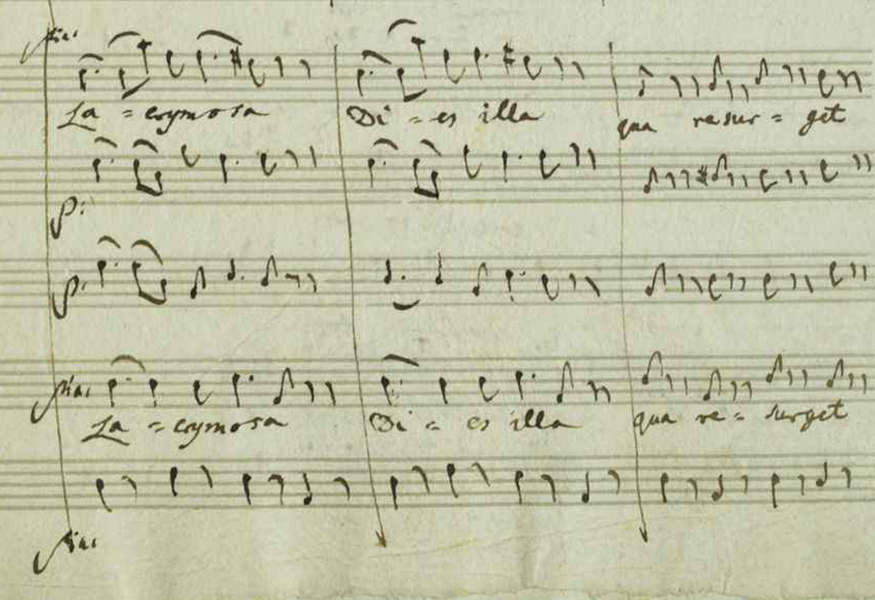 pia:
La = crymosa Di = es illa qua resur = get
p:
p:
pia:
La = crymosa Di = es illa qua re = surget
pia: